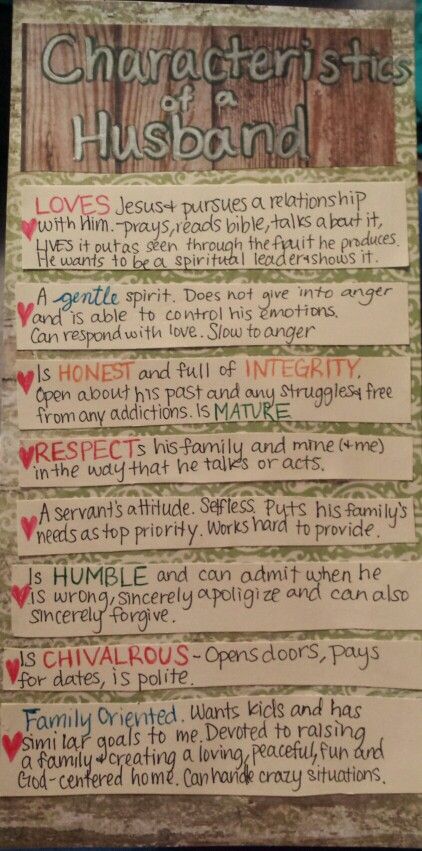 Characteristics
of a
Husband
LOVES Jesus & pursues a relationship
with Him. - prays, reads bible, talks about it,
LIVES it out as seen through the fruit he produces.
He wants to be a spiritual leader & shows it.
A gentle spirit. Does not give into anger
and is able to control his emotions.
Can respond with love. Slow to anger
Is HONEST and full of INTEGRITY.
Open about his past and any struggles & free
from any addictions. Is MATURE
RESPECTs his family and mine (& me)
in the way that he talks or acts.
A servant's attitude. Selfless. Puts his family's
needs as top priority. Works hard to provide.
Is HUMBLE and can admit when he
is wrong, sincerely apoligize and can also
sincerely forgive.
Is CHIVALROUS - Opens doors, pays
for dates, is polite.
Family Oriented. Wants kids and has
similar goals to me. Devoted to raising
a family & creating a loving, peaceful, fun and
God-centered home. Can handle crazy situations.